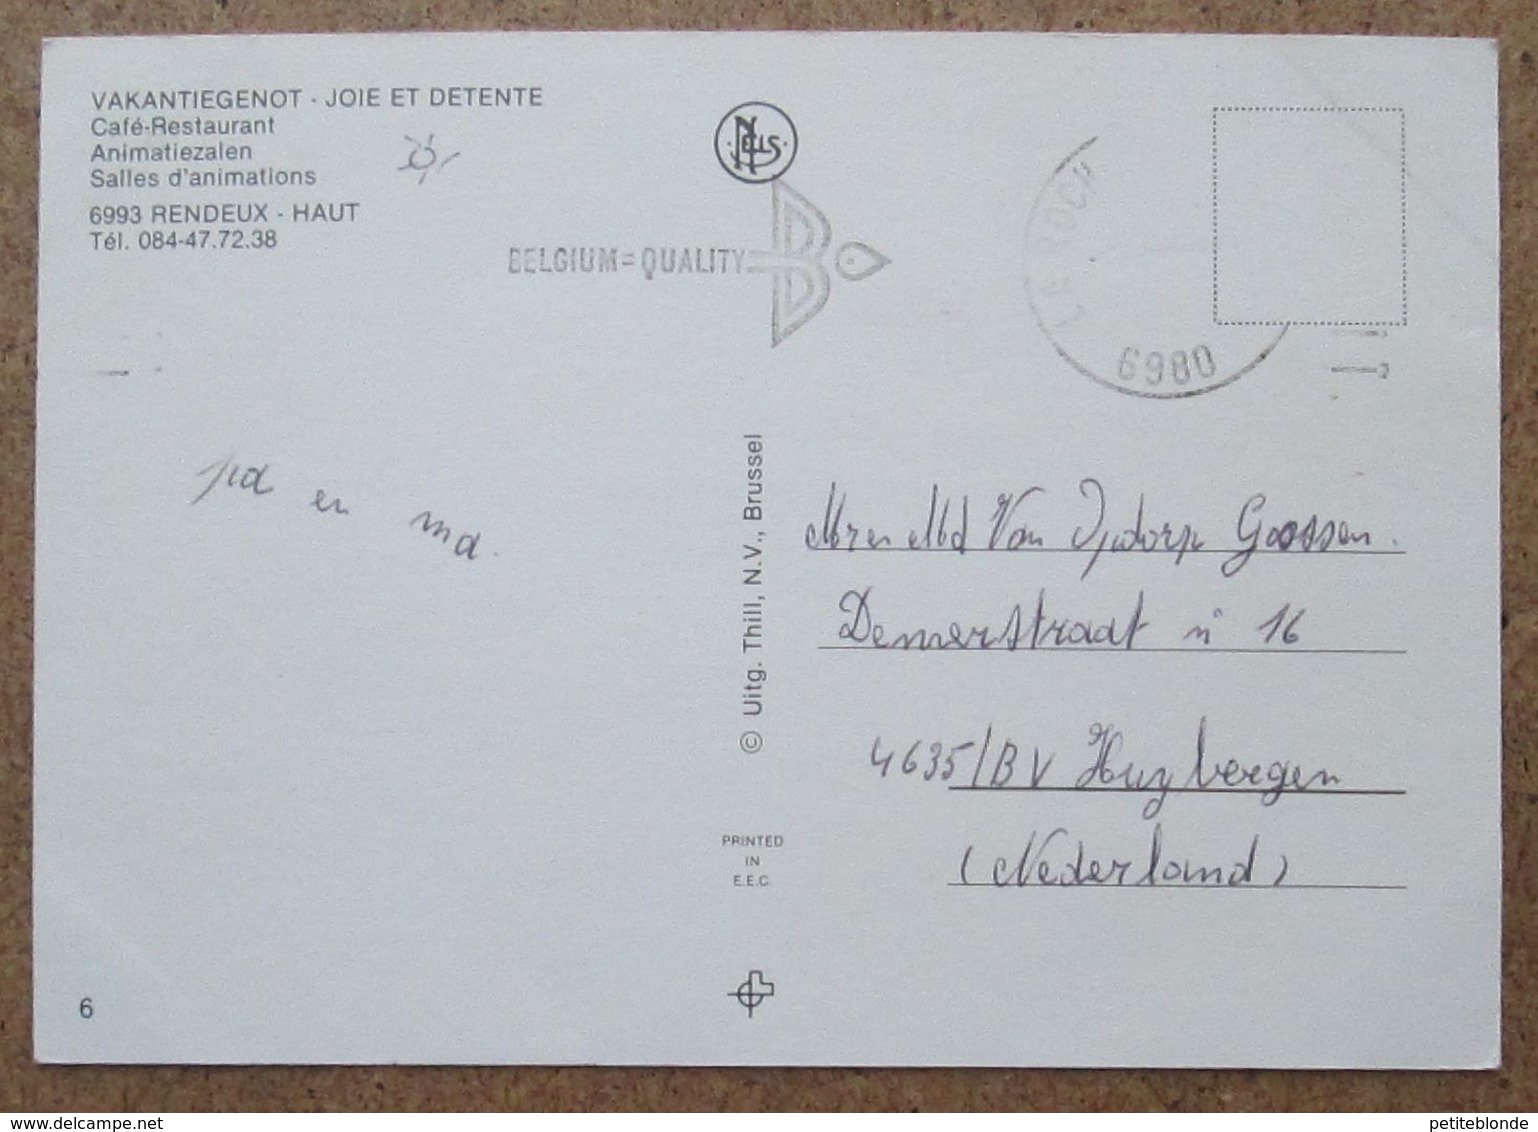 VAKANTIEGENOT - JOIE ET DETENTE
Café-Restaurant
Animatiezalen
Salles d'animations
6993 RENDEUX - HAUT
Tél. 084-47.72.38
NELS
BELGIUM=QUALITY
B
LA ROCH
6980
pa en ma.
Mr en Md Van Goossen.
Demerstraat n° 16
4635/BV Huybergen
(Nederland)
© Uitg. Thill, N.V., Brussel
PRINTED
IN
E.E.C.
6
www.delcampe.net
petiteblonde